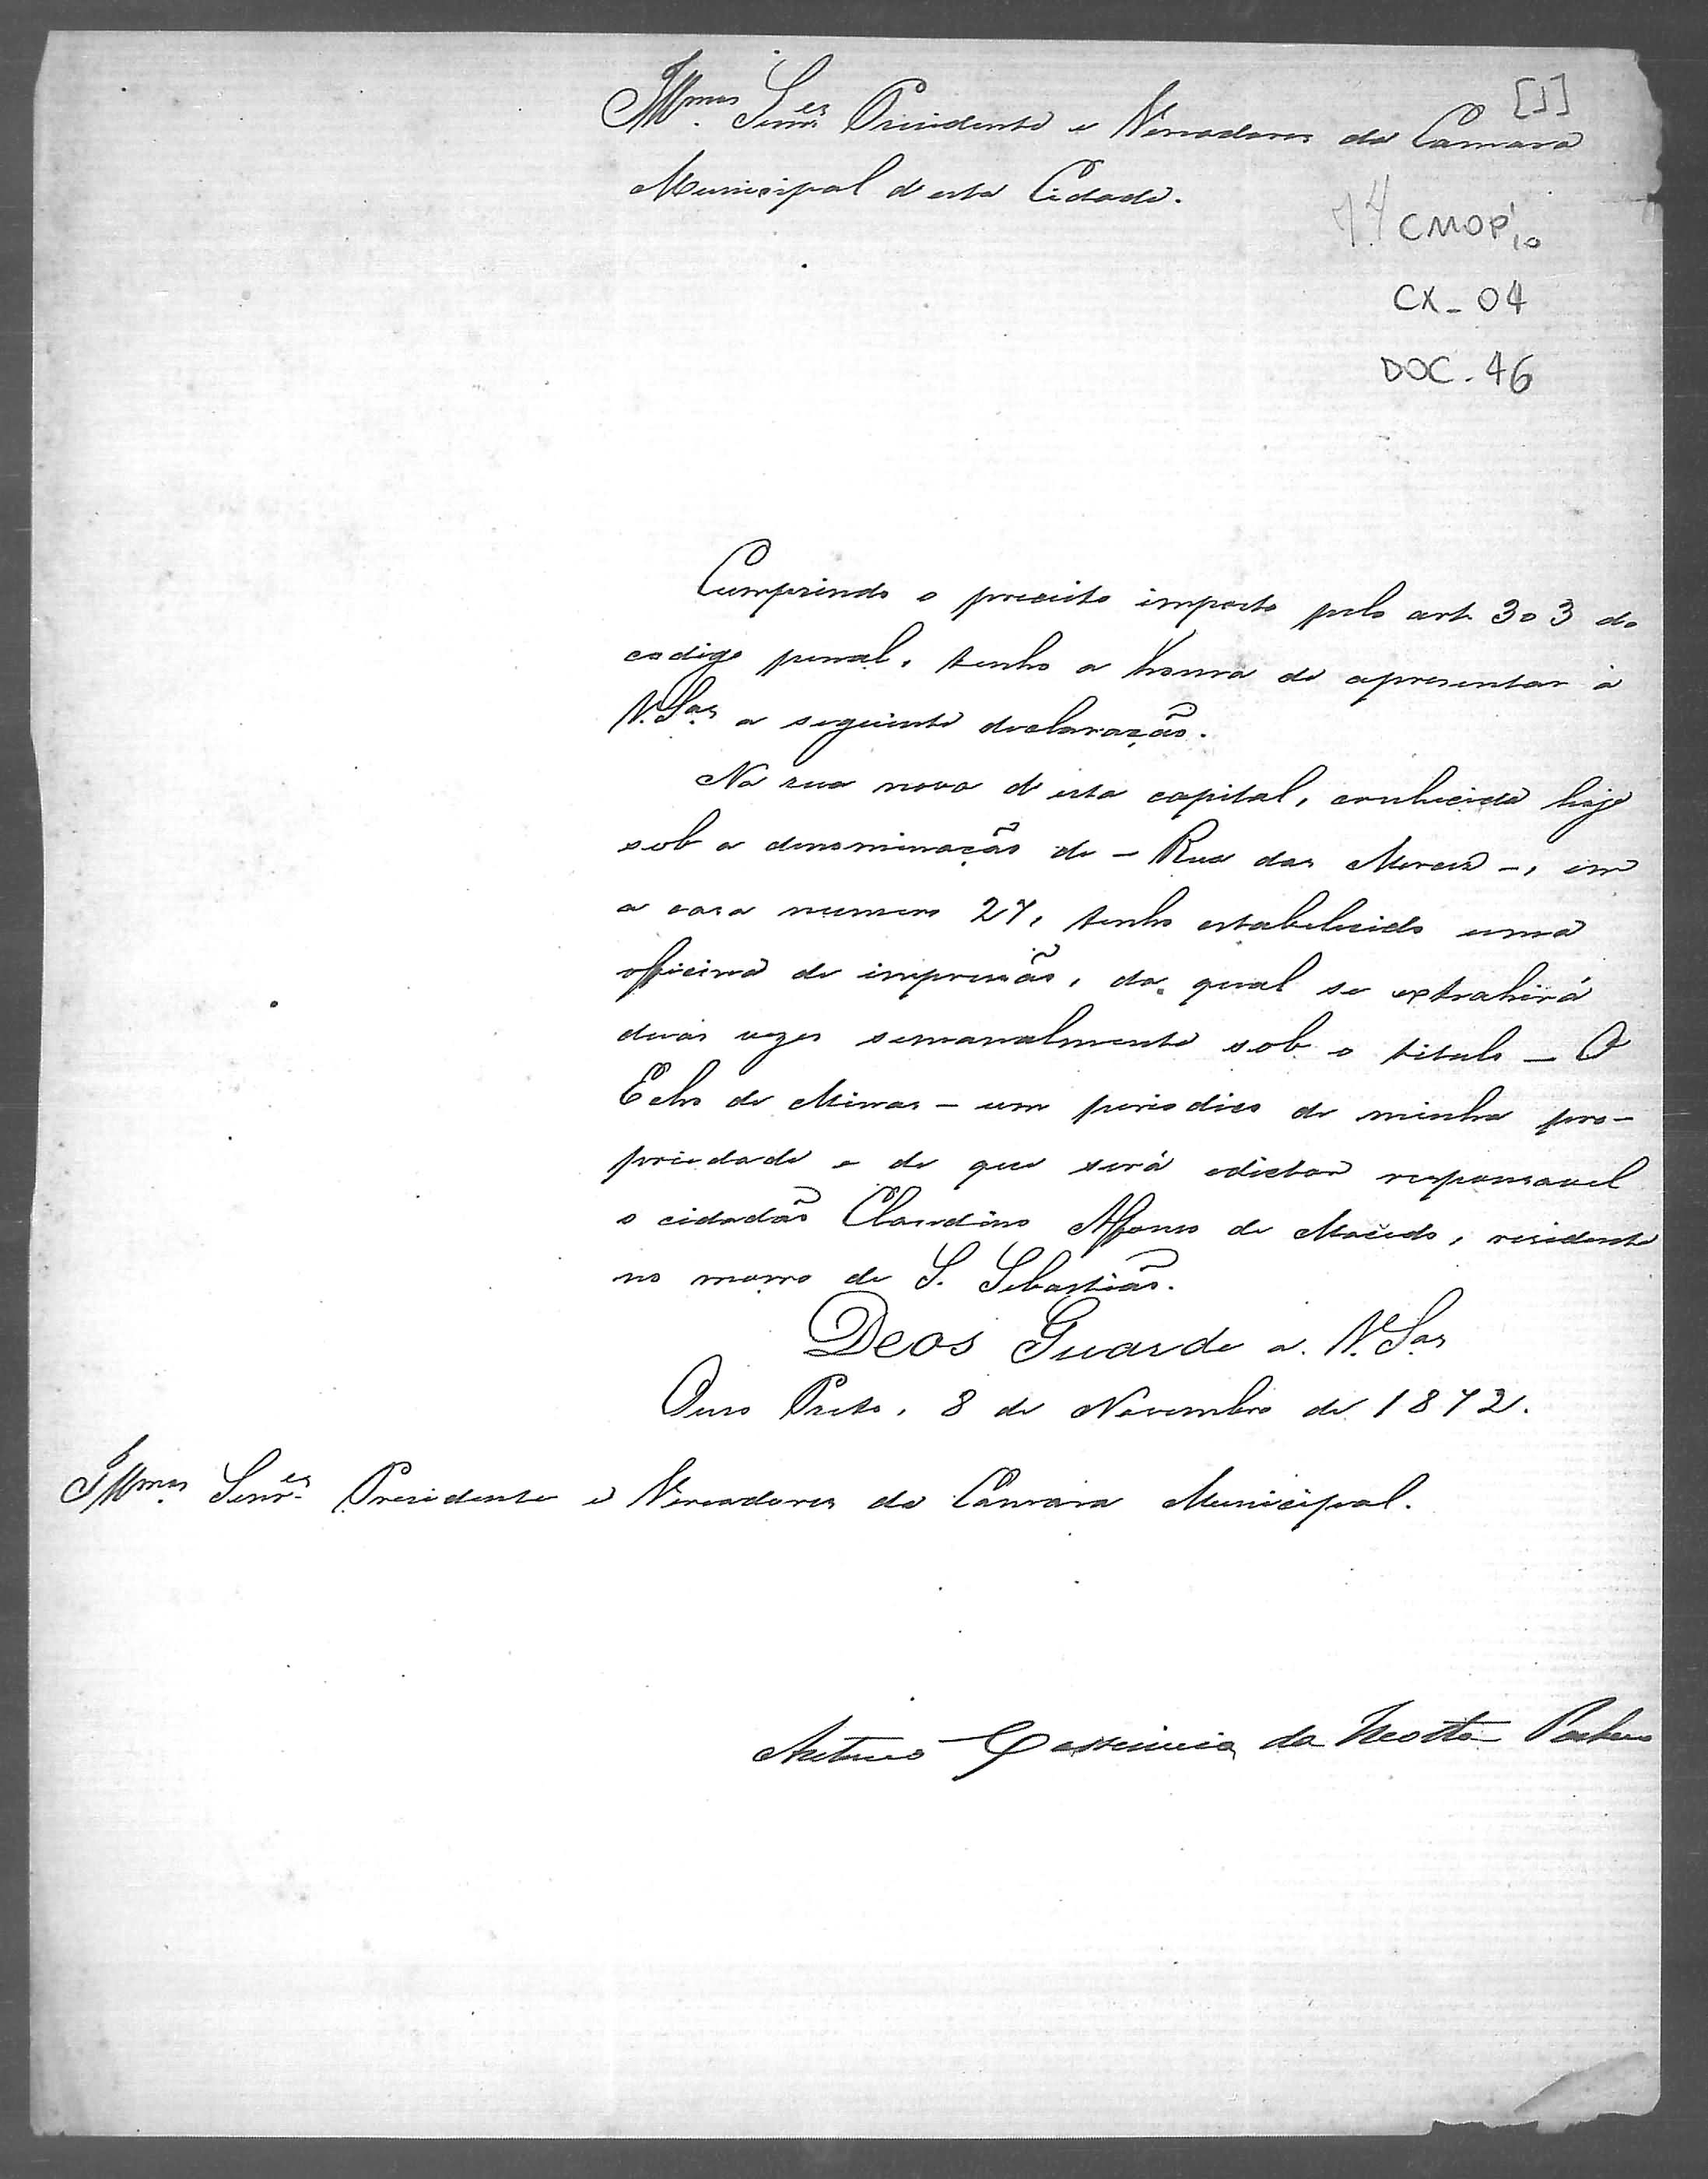 [1]
Illmos. Senres. Presidente e Vereadores da Camara
Municipal d'esta Cidade.
CMOP
CX_04
DOC. 46
Cumprindo o preceito imposto pelo art. 303 do
codigo penal, tenho a honra de apresentar á
V. Sas a seguinte declaração.
Na rua nova d'esta capital, conhecida hoje
sob a denominação de - Rua das Mercês -, em
a casa numero 27, tenho estabelecido uma
officina de impressão, da qual se extrahirá
duas vezes semanalmente sob o titulo - O
Echo de Minas - um periodico de minha pro-
priedade e de que será edictor responsavel
o cidadão Claudino Affonso de Macedo, residente
no morro de S. Sebastião.
Deos Guarde a V. Sas
Ouro Preto, 8 de Novembro de 1872.
Illmos. Senres. Presidente e Vereadores da Câmara Municipal.
da Costa Pacheco